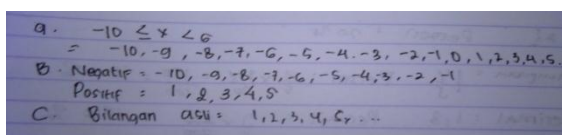 a. -10 ≤ x < 6
= -10, -9, -8, -7, -6, -5, -4. -3, -2, -1, 0, 1, 2, 3, 4, 5.
B. Negatif = -10, -9, -8, -7, -6, -5, -4, 3, -2, -1
Positif : 1, 2, 3, 4, 5
C. Bilangan asli : 1, 2, 3, 4, 5, ...